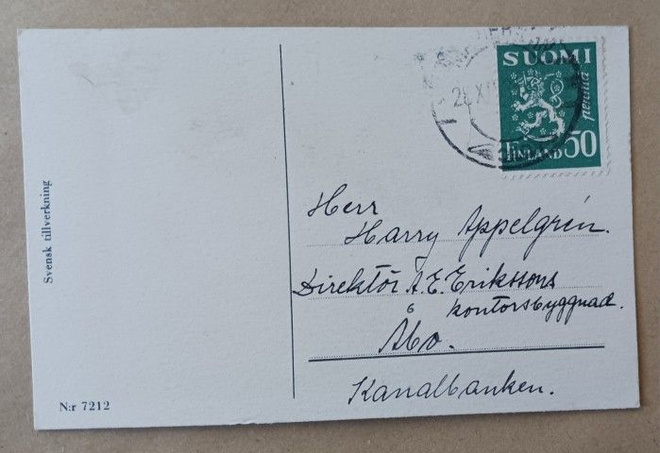 SUOMI
50 penniä
FINLAND
Svensk tillverkning
Herr
Harry Appelgrén.
Direktör A. E. Erikssons
kontorsbyggnad.
Åbo.
Kanalbanken.
N:r 7212